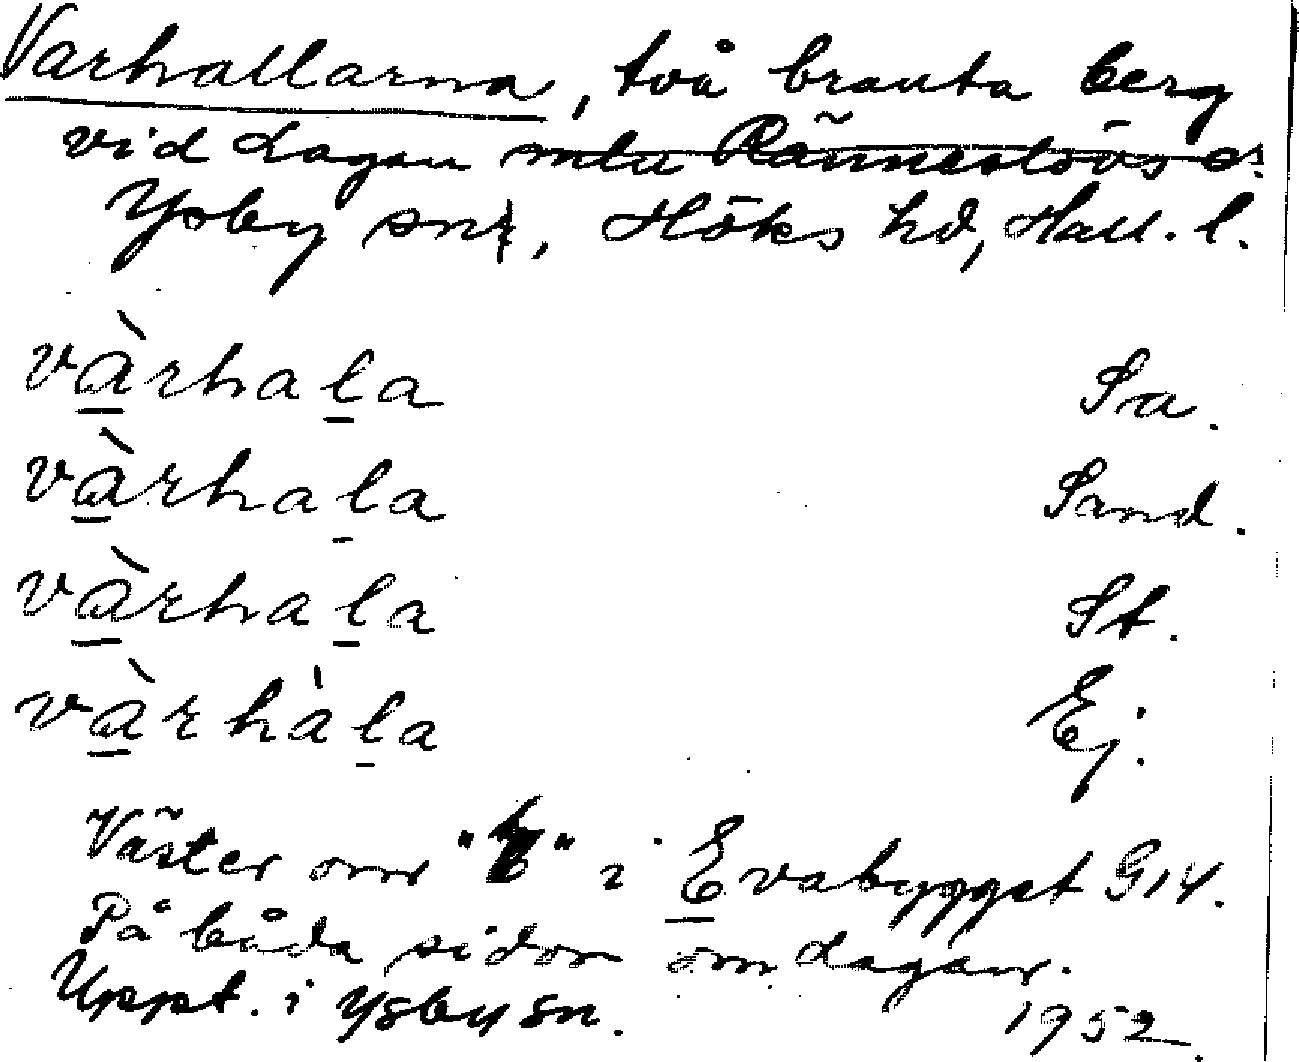 Varhallarna, två branta berg
vid Lagan mlu Ränneslövs o.
Ysby snr, Höks hd, Hall. l.
vàrhala Sa.
vàrhala Sand.
vàrhala St.
vàrhàla Ej.
Väster om "b" i Evabygget G 14.
På båda sidor om Lagan.
Uppt. i Ysby sn. 1952.